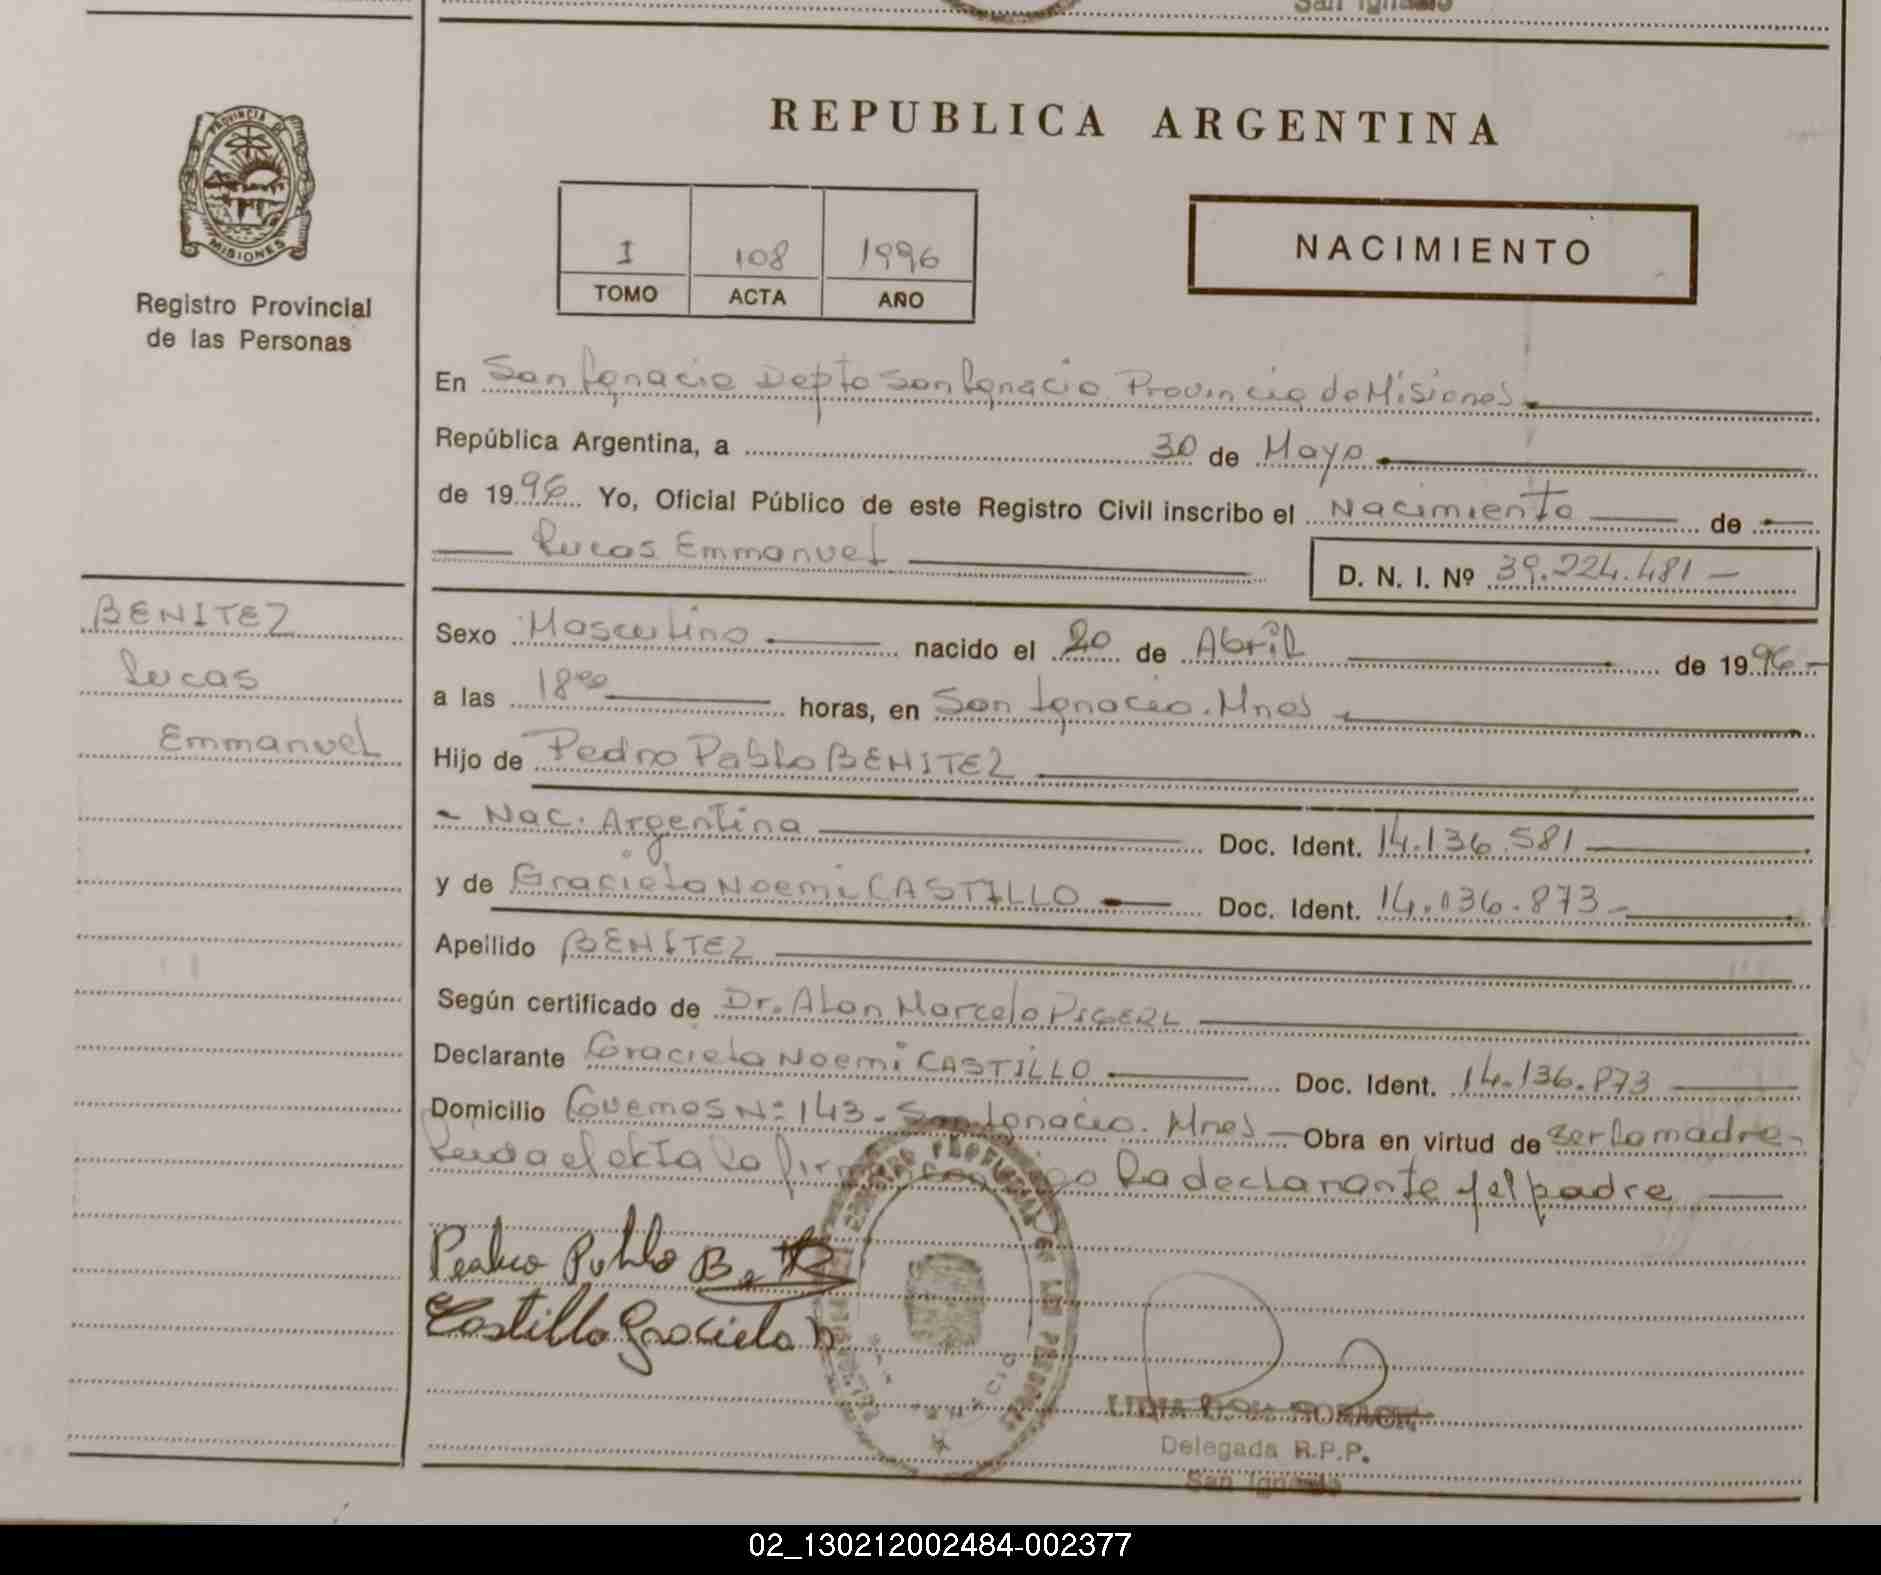 San Ignacio
PROVINCIA DE
MISIONES
Registro Provincial
de las Personas
REPUBLICA ARGENTINA
I 108 1996
TOMO ACTA AÑO
NACIMIENTO
En San Ignacio Depto San Ignacio Provincia de Misiones
República Argentina, a 30 de Mayo
de 1996 Yo, Oficial Público de este Registro Civil inscribo el Nacimiento de
Lucas Emmanuel
D. N. I. Nº 39.224.481
BENITEZ
Lucas
Emmanuel
Sexo Masculino nacido el 20 de Abril de 1996
a las 18 00 horas, en San Ignacio. Mnes
Hijo de Pedro Pablo BENITEZ
Nac. Argentina Doc. Ident. 14.136.581
y de Graciela Noemi CASTILLO Doc. Ident. 14.136.873
Apellido BENITEZ
Según certificado de Dr. Alan Marcelo
Declarante Graciela Noemi CASTILLO Doc. Ident. 14.136.873
Domicilio Nº 143 - San Ignacio. Mnes Obra en virtud de ser la madre
Leida el acta la la declarante y el padre
Pedro Pablo
Castillo Graciela N
LIDIA
Delegada R.P.P.
San Ignacio
02_130212002484-002377